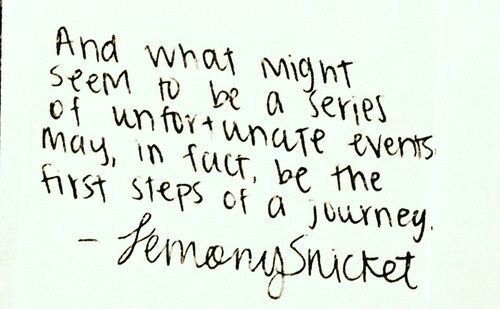 And what might
seem to be a series
of unfortunate events
may, in fact, be the
first steps of a journey.
- Lemony Snicket